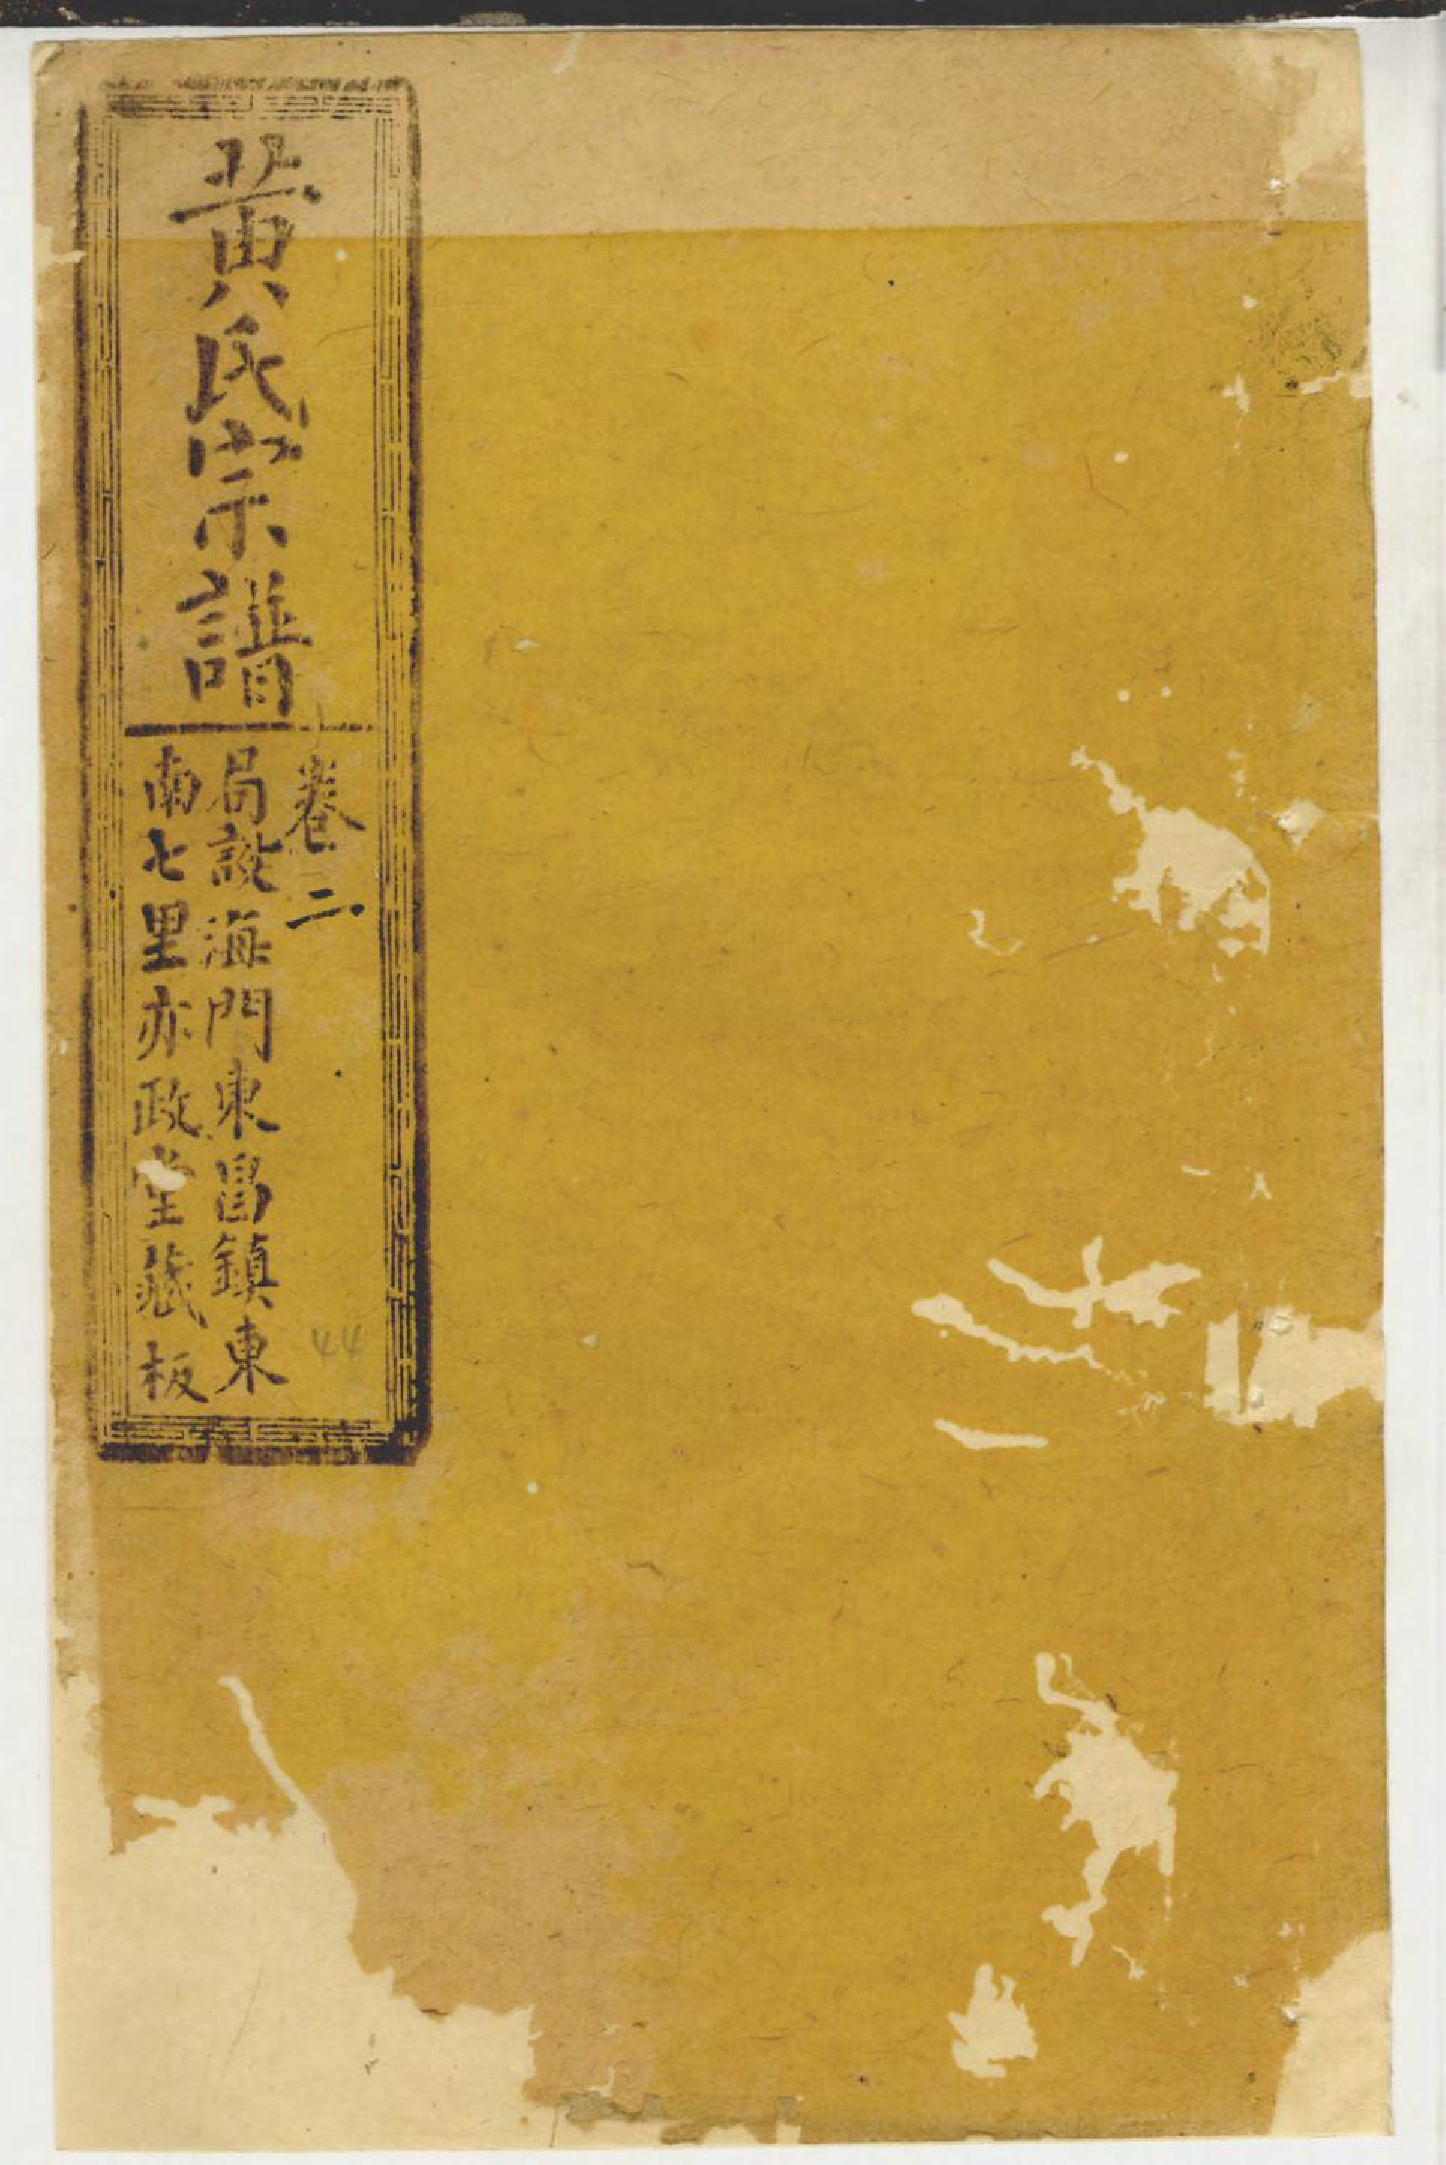 黄氏宗譜
卷二
局設海門東昌鎮東
南七里亦政堂藏板
44